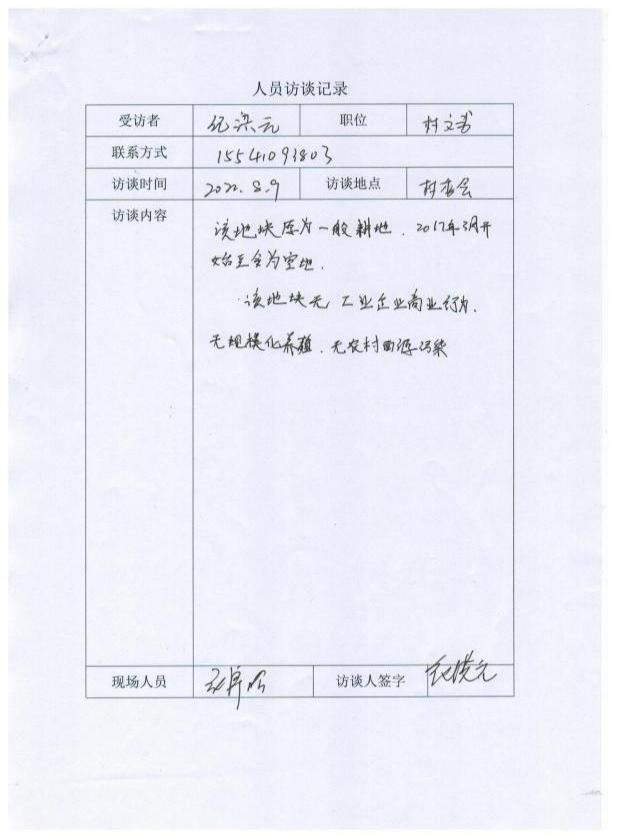 人员访谈记录
受访者 纪洪元 职位 村文书
联系方式 15541093803
访谈时间 2022.8.9 访谈地点 村委会
访谈内容
该地块原为一般耕地，2017年3月开
始至今为空地.
该地块无工业企业商业行为.
无规模化养殖、无农村面源污染
现场人员 访谈人签字 纪洪元